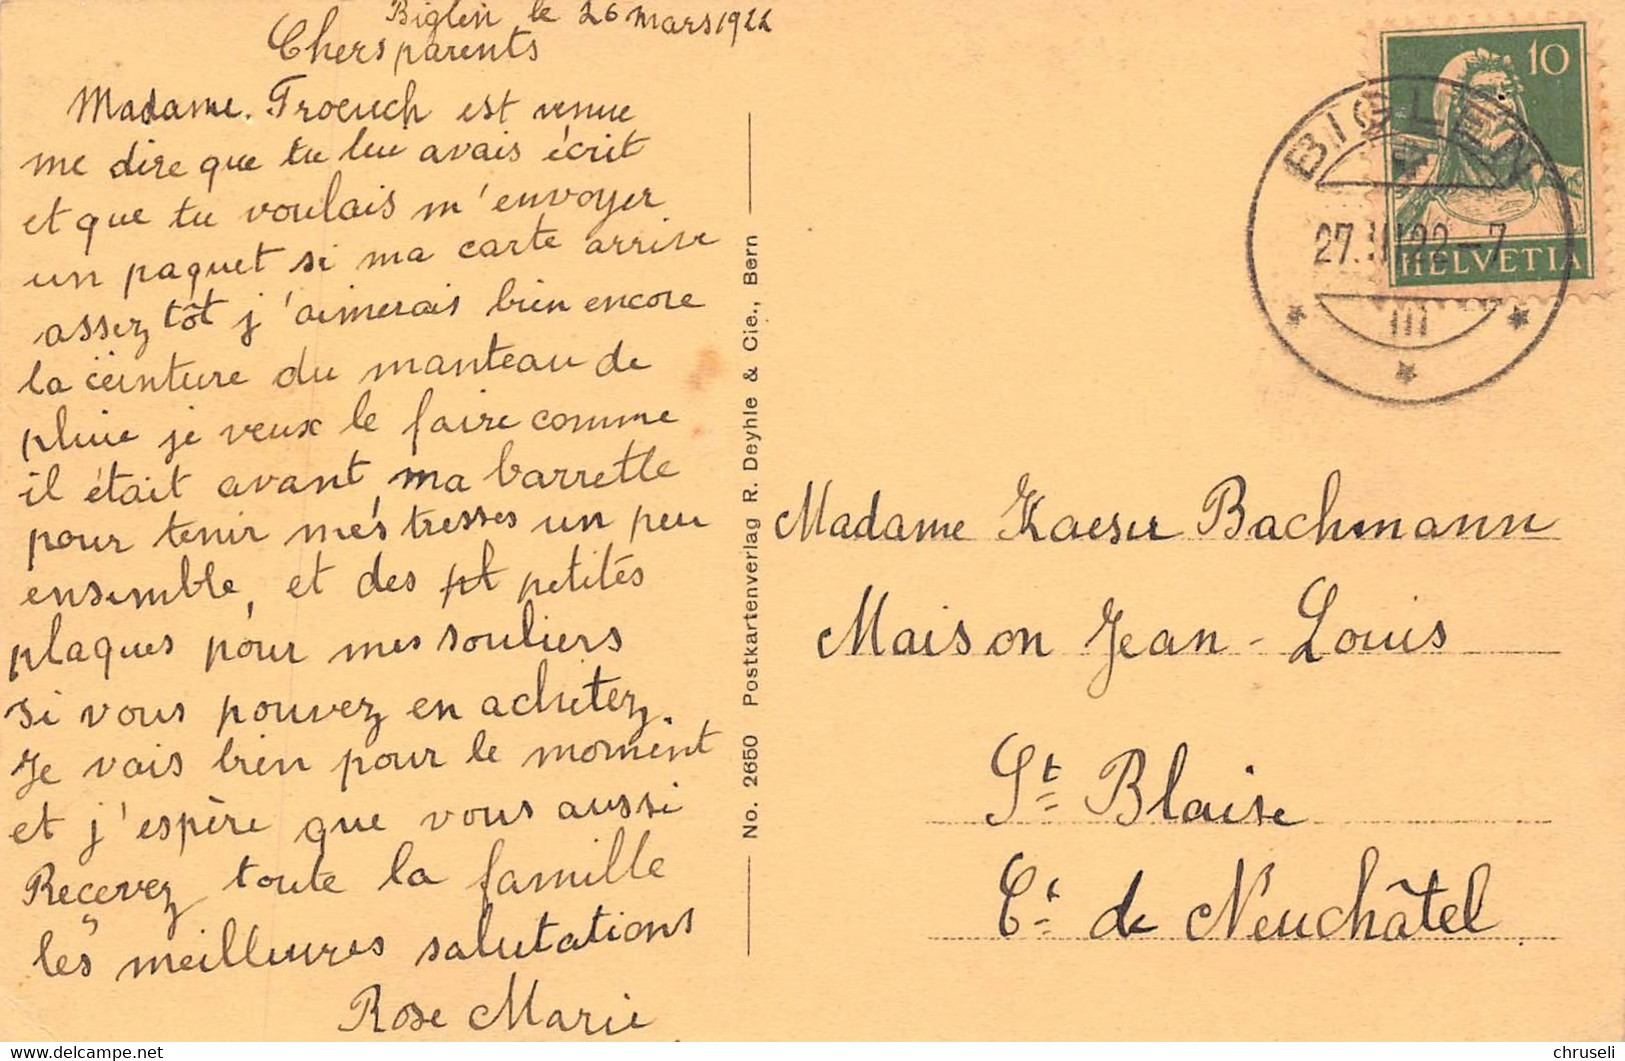 Biglen le 26 mars 1922
Chers parents
Madame. Troeuch est venue
me dire que tu lui avais écrit
et que tu voulais m'envoyer
un paquet si ma carte arrive
assez tôt j'aimerais bien encore
la ceinture du manteau de
pluie je veux le faire comme
il était avant, ma barrette
pour tenir mes tresses un peu
ensemble, et des pt petites
plaques pour mes souliers
si vous pouvez en achetez.
Je vais bien pour le moment
et j'espère que vous aussi
Recevez toute la famille
les meilleures salutations
Rose Marie
No. 2650 Postkartenverlag R. Deyhle & Cie., Bern
10
HELVETIA
BIGLEN
27.III.22-7
III
Madame Kaeser Bachmann
Maison Jean-Louis
St Blaise
Ct de Neuchâtel
chruseli